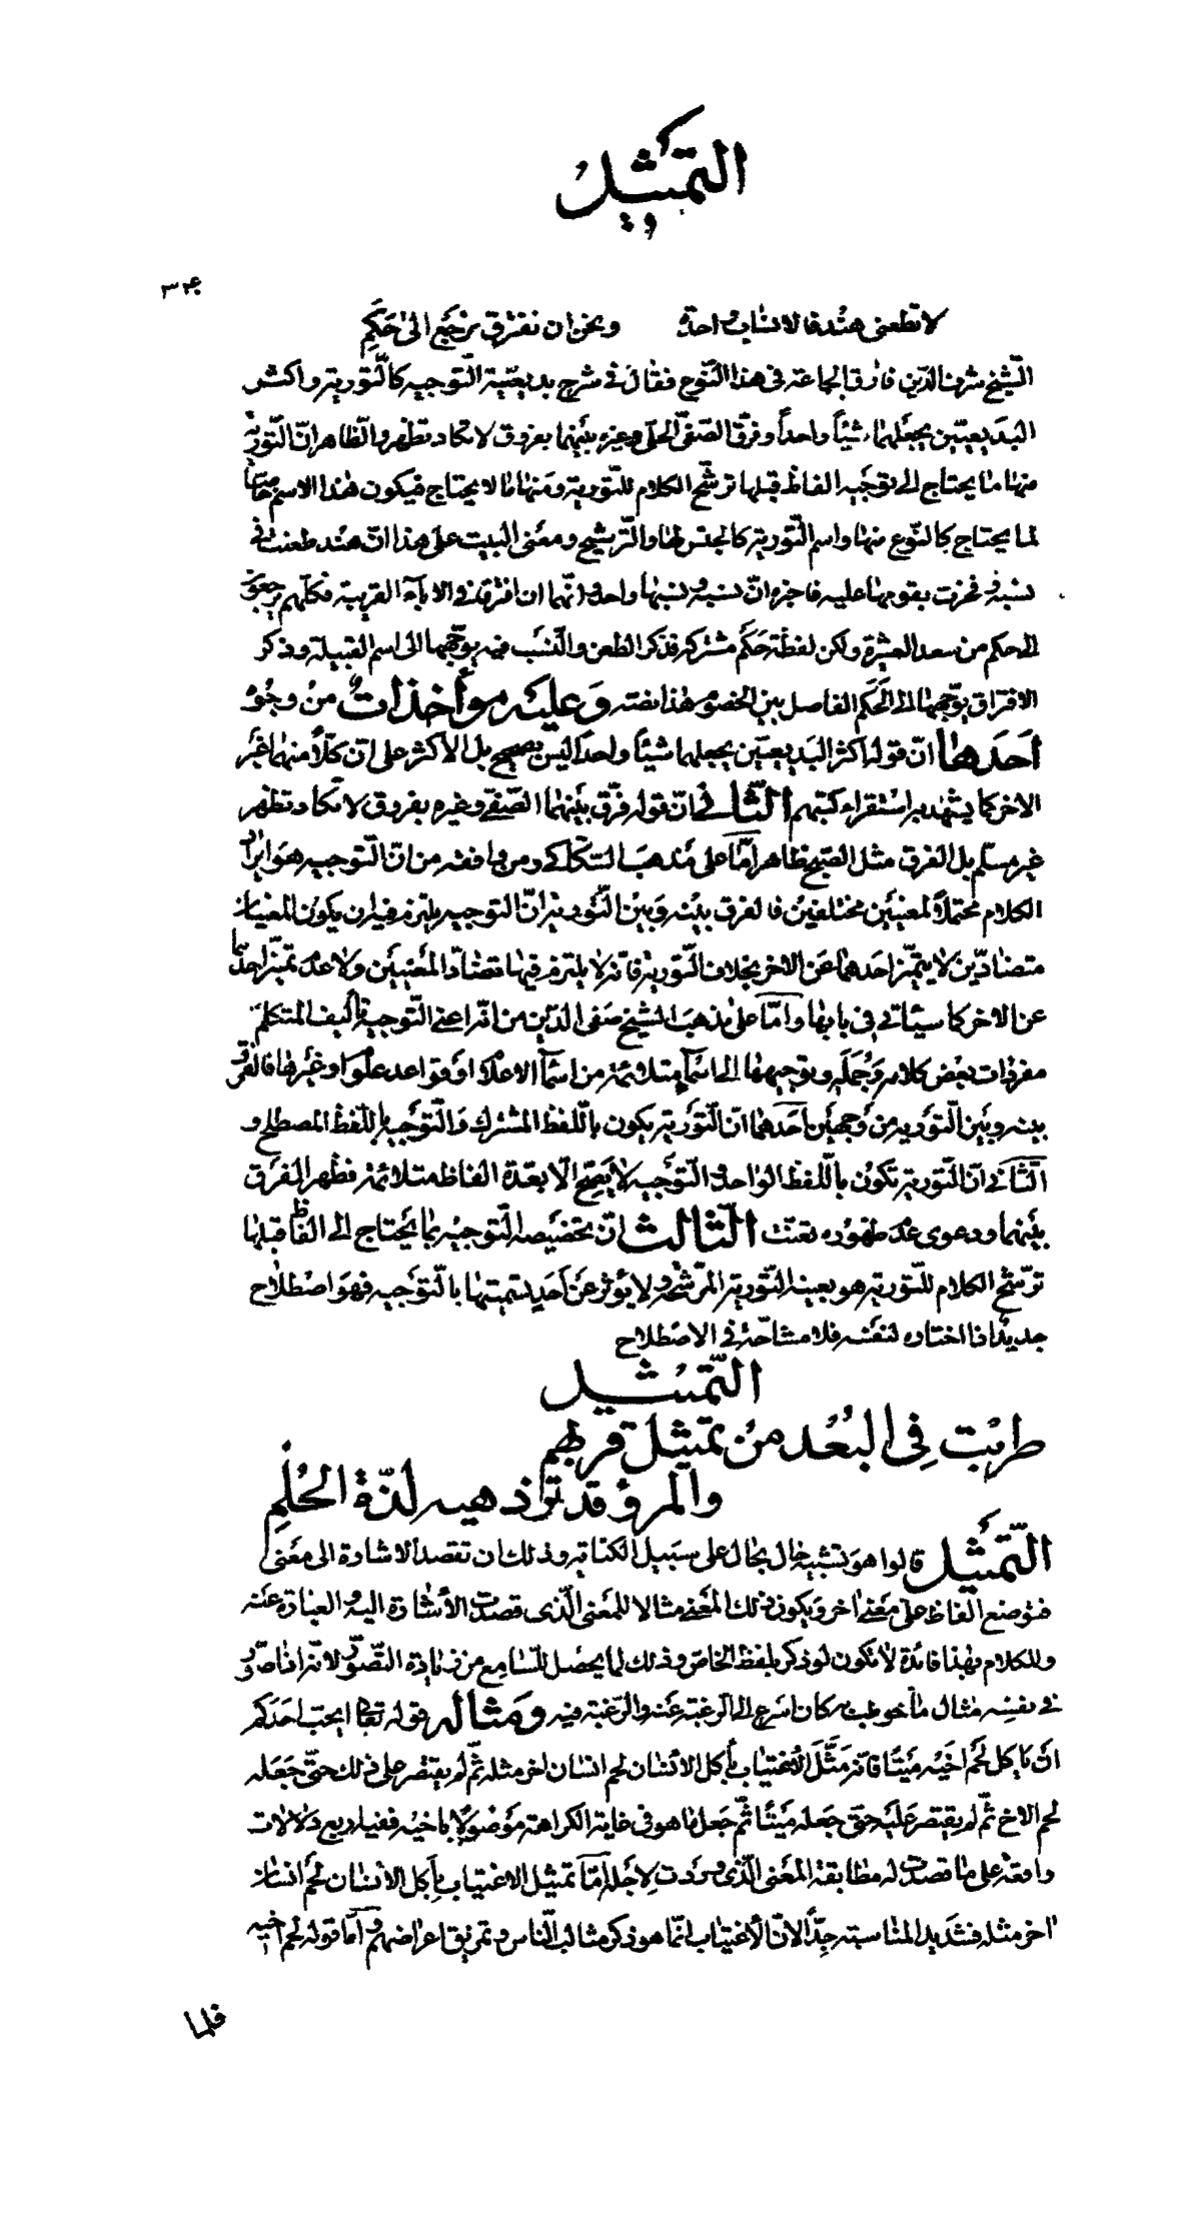 التمثيل
لا تطعني هند فالانساب واحدة ونحن ان نفترق نرجع الى حكم
الشيخ شرف الدين فارق الجماعة في هذا النوع فقال في شرح بديعيته التوجيه كالتورية واكثر
البديعيين يجعلهما شيئا واحدا وفرق الصفى الحلى وغيره بينهما بفروق لا تكاد تظهر والظاهر ان التورية
منها ما يحتاج الى توجيه الفاظ قبلها ترشح الكلام للتورية ومنها ما لا يحتاج فيكون هذا الاسم
لما يحتاج كالنوع منها واسم التورية كالجنس لها والترشيح ومعنى البيت على هذا ان هند طعنت في
نسبه وفخرت بقومها عليه فاخبره ان نسبه ونسبها واحد وانهما ان افترقت في الاباء القريبة فكلهم يرجعون
الى حكم من سعد العشيرة ولكن لفظة حكم مشتركة فذكر الطعن والنسب فيه يوجهها الى اسم القبيلة وذكر
الافتراق يوجهها الى الحكم الفاصل بين الخصوم هذا نصه وعليه مؤاخذات من وجوه
احدها ان قوله اكثر البديعيين يجعلهما شيئا واحدا ليس بصحيح بل الاكثر على ان كلا منهما غير
الاخر كما يشهد به استقراء كتبهم الثاني ان قوله فرق بينهما الصفي وغيره بفروق لا تكاد تظهر
غير مسلم بل الفرق مثل الصبح ظاهر اما على مذهب السكاكي ومن وافقه من ان التوجيه هو ايراد
الكلام محتملا لمعنيين مختلفين فالفرق بينه وبين التورية ان التوجيه يلتزم فيه ان يكون المعنيان
متضادين لا يتميز احدهما عن الاخر بخلاف التورية فانه لا يلتزم فيها تضاد المعنيين ولا عدم تميز احدهما
عن الاخر كما سيأتي في بابها واما على مذهب الشيخ صفى الدين من انه اعني التوجيه تأليف المتكلم
مفردات بعض كلامه وجمله وتوجيهها الى اسماء متلائمة من اسماء الاعلام او قواعد علوم او غيرها فالفرق
بينه وبين التورية من وجهين احدهما ان التورية يكون باللفظ المشترك والتوجيه باللفظ المصطلح و
الثاني ان التورية تكون باللفظ الواحد والتوجيه لا يصح الا بعدة الفاظ متلائمة فظهر الفرق
بينهما ودعوى عدم ظهوره تعنت الثالث ان تخصيصه التوجيه بما يحتاج الى الفاظ قبلها
ترشح الكلام للتورية هو بعينه التورية المرشحة ولا يؤثر عن احد تسميتها بالتوجيه فهو اصطلاح
جديد اذا اختاره لنفسه فلا مشاحة في الاصطلاح
التمثيل
طربت في البعد من تمثيل قربهم
والمرؤ قد تواذهيه لذة الحلم
التمثيل قالوا هو تشبيه حال بحال على سبيل الكناية وذلك ان تقصد الاشارة الى معنى
فتوضع الفاظ على معنى اخر ويكون ذلك المعنى مثالا للمعنى الذى قصدت الأشارة اليه والعبارة عنه
وللكلام بهذا فائدة لا تكون لو ذكر بلفظ الخاص وذلك لما يحصل للسامع من زيادة التصور لانه اذا صور
في نفسه مثال ما خوطب به كان اسرع الى الرغبة عنه والرغبة فيه ومثاله قوله تعالى ايحب احدكم
ان ياكل لحم اخيه ميتا فانه مثل الاغتياب بأكل الانسان لحم انسان اخر مثله ثم لم يقتصر على ذلك حتى جعله
لحم الاخ ثم لم يقتصر عليه حتى جعله ميتا ثم جعل ما هو في غاية الكراهة موصولا باخيه ففيه اربع دلالات
واقعة على ما قصدت له مطابقة المعنى الذى وردت لاجله اما تمثيل الاغتياب بأكل الانسان لحم انسان
اخر مثله فشديد المناسبة جدا لان الأغتياب انما هو ذكر مثالب الناس وتمزيق اعراضهم واما قوله لحم اخيه
فلما